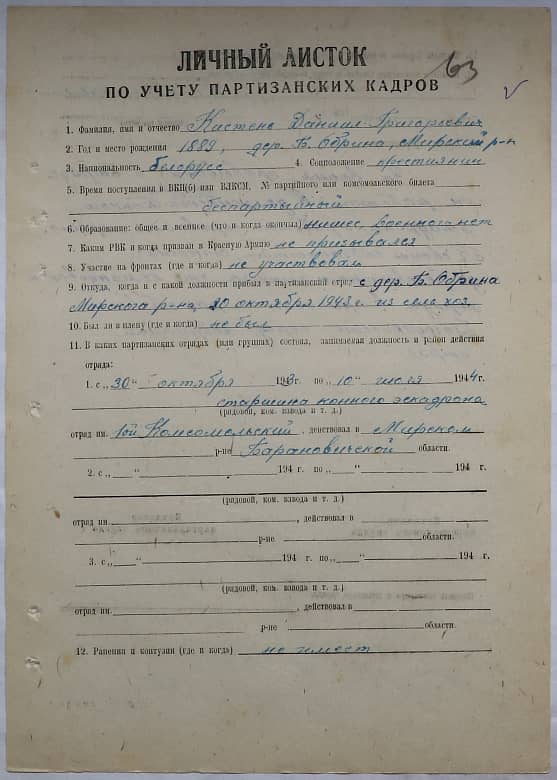 ЛИЧНЫЙ ЛИСТОК
63
ПО УЧЕТУ ПАРТИЗАНСКИХ КАДРОВ
1. Фамилия, имя и отчество Кистень Даниил Григорьевич
2. Год и место рождения 1889, дер. Б. Обрина, Мирский р-н
3. Национальность белорусс 4. Соцположение крестьянин
5. Время поступления в ВКП(б) или ВЛКСМ, № партийного или комсомольского билета
беспартыйный
6. Образование: общее и военное (что и когда окончил) низшее, военного нет
7. Каким РВК и когда призван в Красную Армию не призывался
8. Участие на фронтах (где и когда) не участвовал
9. Откуда, когда и с какой должности прибыл в партизанский отряд с дер. Б. Обрина
Мирского р-на, 30 октября 1943 г. из сель хоз.
10. Был ли в плену (где и когда) не был
11. В каких партизанских отрядах (или группах) состоял, занимаемая должность и район действия
отряда:
1. с „30“ октября 1943 г. по „10“ июля 1944 г.
старшина конного эскадрона
(рядовой, ком. взвода и т. д.)
отряд им. 1ой Комсомольский, действовал в Мирском
р-не Барановичской области.
2. с „ “ 194 г. по „ “ 194 г.
(рядовой, ком. взвода и т. д.)
отряд им. , действовал в
р-не области.
3. с „ “ 194 г. по „ “ 194 г.
(рядовой, ком. взвода и т. д.)
отряд им. , действовал в
р-не области.
12. Ранения и контузии (где и когда) не имеет